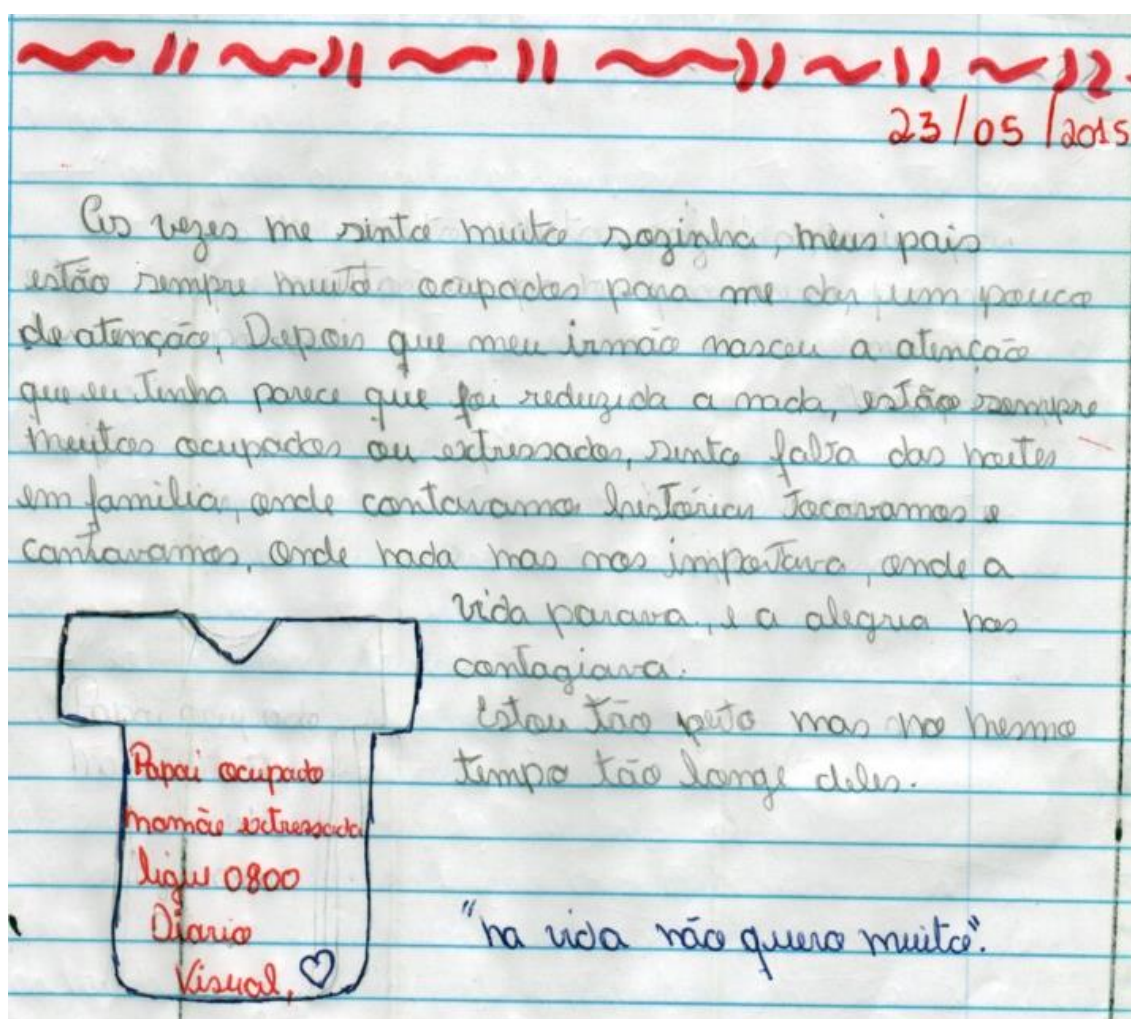 23/05/2015
As vezes me sinto muito sozinha, meus pais
estão sempre muito ocupados para me dar um pouco
de atenção, Depois que meu irmão nasceu a atenção
que eu Tinha parece que foi reduzida a nada, estão sempre
muitos ocupados ou extressados, sinto falta das noites
em família, onde contavamos histórias Tocavamos e
cantavamos, onde nada mas nos importava, onde a
vida parava, e a alegria nos
contagiava.
Estou tão perto mas no mesmo
tempo tão longe deles.
Papai ocupado
mamãe extressada
ligue 0800
Diario
Visual,
"na vida não quero muito".